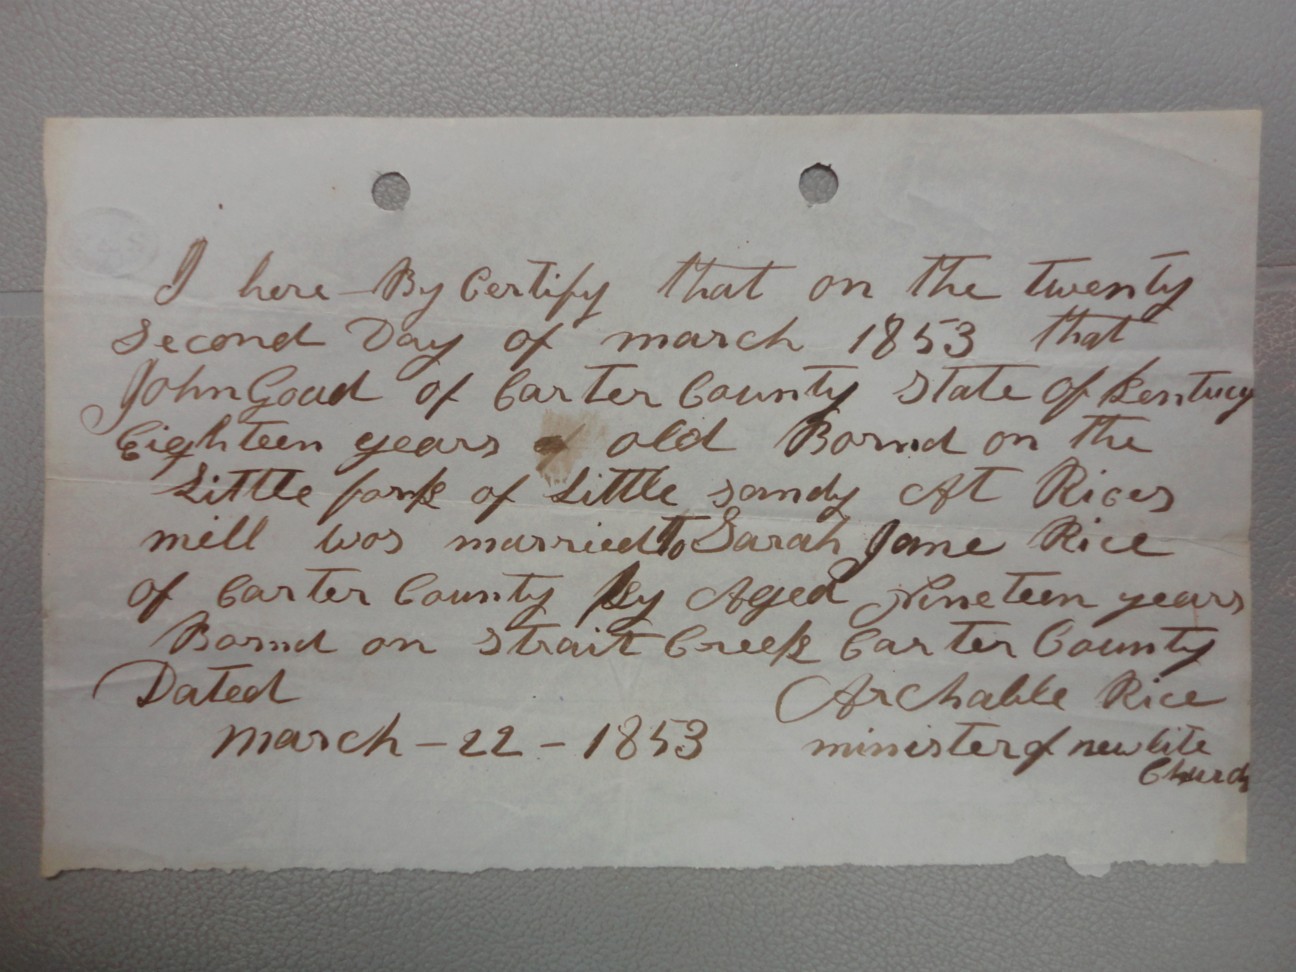 I here By Certify that on the twenty
Second Day of march 1853 that
John Goad of Carter County State of Kentucy
Eighteen years of old Bornd on the
Little fork of Little sandy At Rices
mill was married to Sarah Jane Rice
of Carter County Ky Aged Nineteen years
Bornd on Strait Creek Carter County
Dated
March - 22 - 1853
Archable Rice
minister of new lite
Church